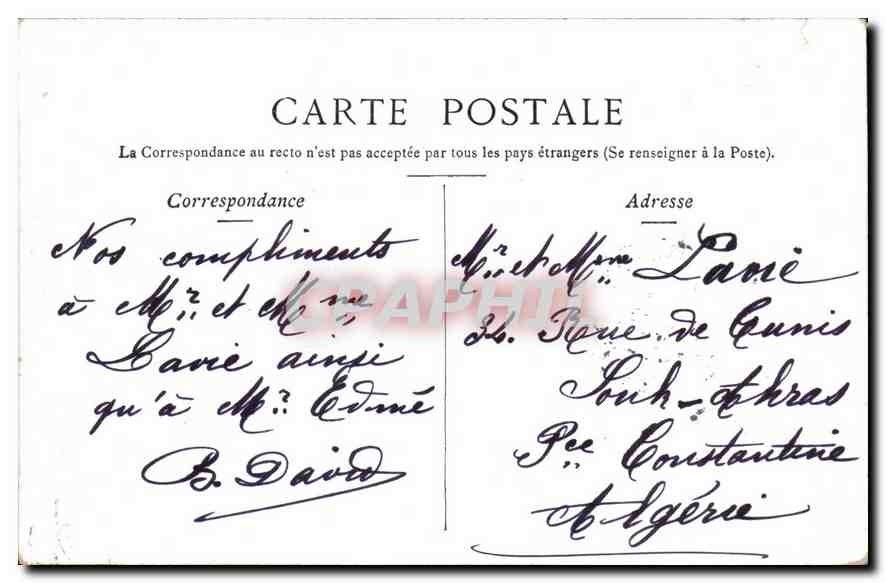 CARTE POSTALE
La Correspondance au recto n'est pas acceptée par tous les pays étrangers (Se renseigner à la Poste).
Correspondance
Nos compliments
à Mr. et Mme
Lavie ainsi
qu'à Mr. Edmé
B. David
Adresse
Mr. et Mme Lavie
34. Rue de Tunis
Souk-Ahras
Pce Constantine
Algérie
CPAPHIL